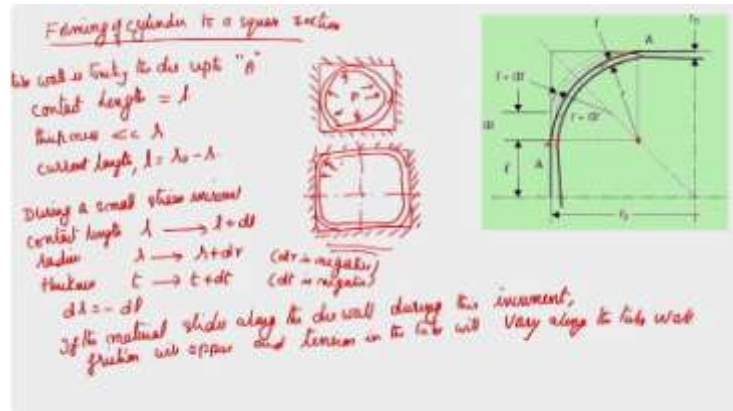 Forming of cylinder to a square section
tube wall is touching the die upto "A"
contact length = l
thickness << r
current length, l = r₀ - r
P
During a small strain increment
contact length l → l+dl
radius r → r+dr (dr is negative)
thickness t → t+dt (dt is negative)
dr = - dl
If the material slides along the die wall during this increment,
friction will appear and tension in the tube will vary along the tube wall
A
r
t + dt
r + dr
dl
l
A
r₀